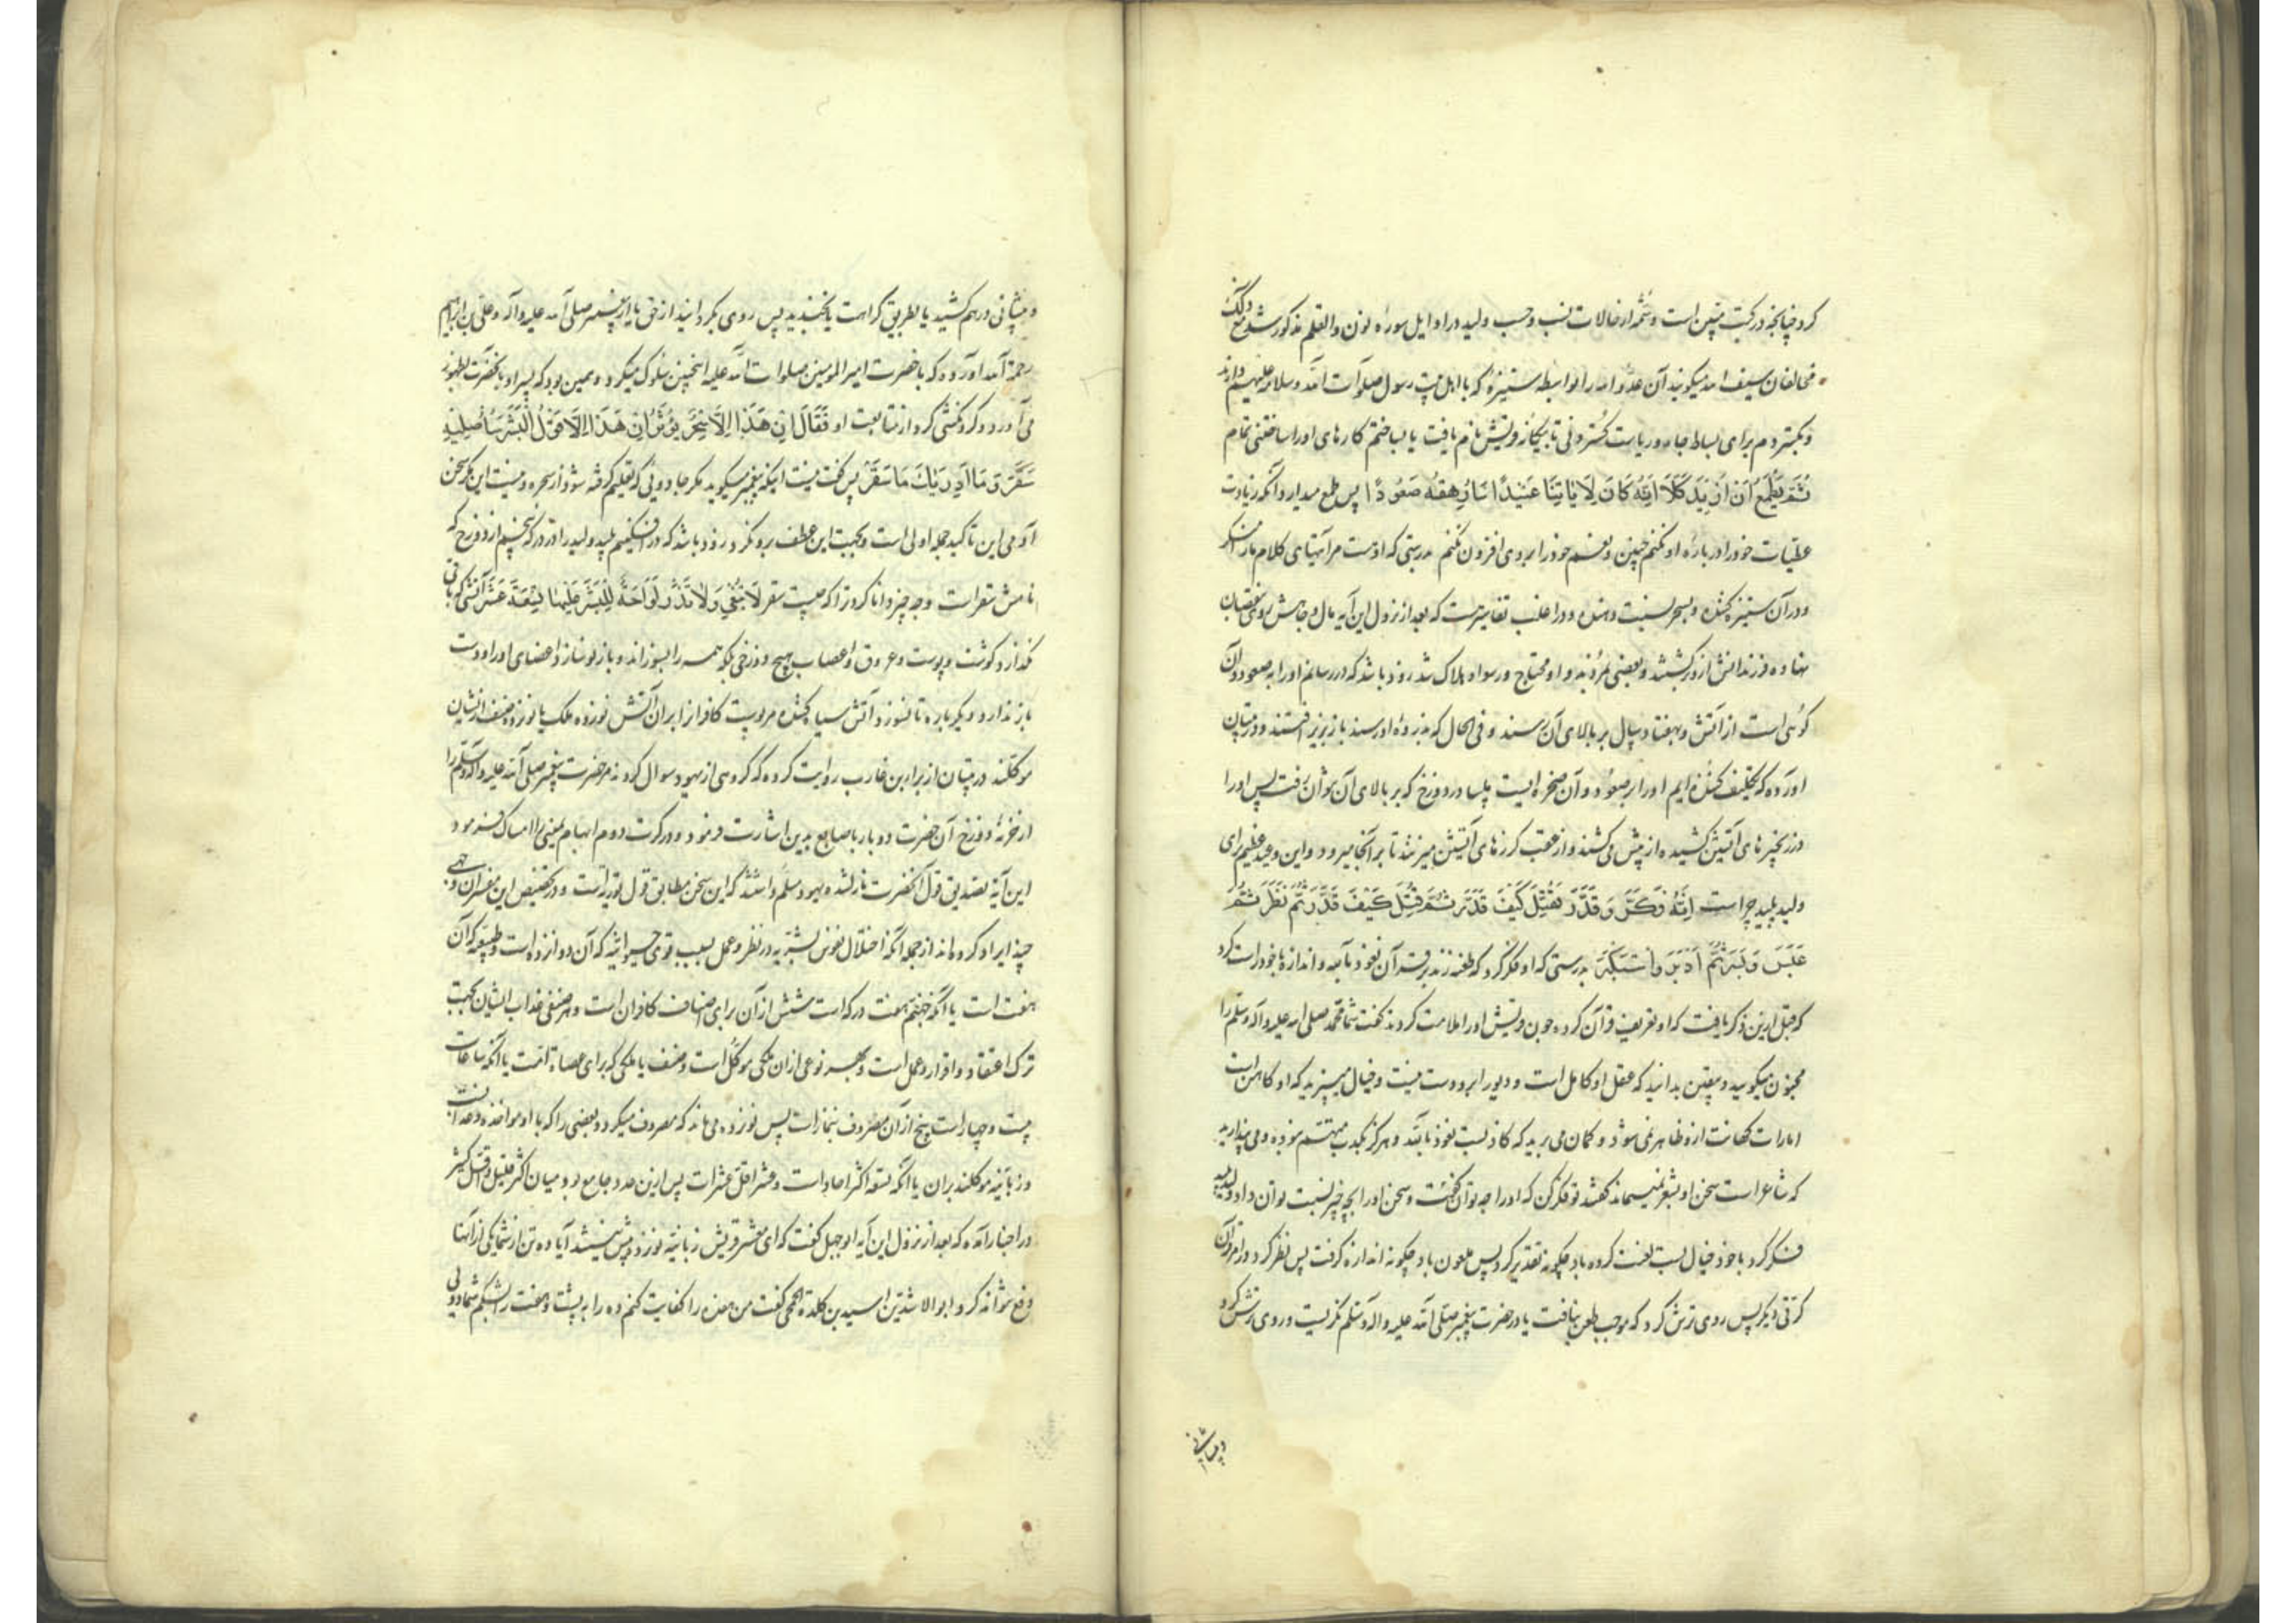 کرد چنانچه در کتب متقین است و شمه از حالات نسب و حسب ولید در اوایل سوره نون والقلم مذکور شد مع ذلک
مخالفان سیف الله میگویند آن عدو الله را بواسطه ستیزه که با اهل بیت رسول صلوات الله وسلامه علیهم دارند
و بگستردم برای بساط جاه و ریاست گستردنی تا بیکانه قریش نام یافت یا بساختم کارهای او را ساختنی تمام
ثُمَّ يَطْمَعُ أَنْ أَزِيدَ كَلَّا إِنَّهُ كَانَ لِآيَاتِنَا عَنِيدًا سَأُرْهِقُهُ صَعُودًا پس طمع میدارد آنکه زیادت
عطیات خود را در باره او نکنم چنین و نعم خود را بروی افزون نکنم بدرستی که او هست مر آیتهای کلام ما را منکر
و در آن ستیزه کننده و بسحر نسبت دهنده و در اغلب تفاسیر است که بعد از نزول این آیه مال و جاهش روی بنقصان
نهاده فرزندانش از و بعضی بمردند و او محتاج و رسوا هلاک شد زود باشد که در رسانم او را به صعود و آن
کوهی است از آتش و بهفتاد سال بر بالای آن رسند و فی الحال که بذروه او رسند باز بزیر افتند و در تبیان
آورده که تکلیف کننده ایم او را بر صعود و آن صخره ایست ملسا در دوزخ که بر بالای آن نتوان رفت پس او را
در زنجیرهای آتشین کشیده از پیش می کشند و از عقب گرزهای آتشین میزنند تا بر آنجا میرود و این وعید عظیم برای
ولید پلید چراست إِنَّهُ فَكَّرَ وَقَدَّرَ فَقُتِلَ كَيْفَ قَدَّرَ ثُمَّ قُتِلَ كَيْفَ قَدَّرَ ثُمَّ نَظَرَ ثُمَّ
عَبَسَ وَبَسَرَ ثُمَّ أَدْبَرَ وَاسْتَكْبَرَ بدرستی که او فکر کرد که طعنه زند بر قرآن نعوذ بالله و اندازه با خود راست کرد
که قبل ازین ذکر یافت که او تعریف قرآن کرده چون قریش او را ملامت کردند گفت شما محمد صلی الله علیه وآله وسلم را
مجنون میگویید و بیقین بدانید که عقل او کامل است و دیو را برو دست نیست و خیال میبرید که او کاهن است
امارات کهانت ازو ظاهر نمی شود و گمان می برید که کاذبست نعوذ بالله و هرگز بکذب متهم نبوده و می پندارید
که شاعر است سخن او بشعر نمیماند گفتند تو فکر کن که او را چه توان گفت و سخن او را بچه چیز نسبت توان داد ولید پلید
فکر کرد با خود خیال بست لعنت کرده باد چگونه تقدیر کرد پس ملعون باد چگونه اندازه گرفت پس نظر کرد در امر قرآن
کرتی دیگر پس روی ترش کرد که موجب طعن نیافت یا در حضرت پیغمبر صلی الله علیه وآله وسلم نگریست و روی ترش کرد
و پیشانی
و پیشانی در هم کشید یا بطریق کراهت بخندید پس روی بگردانید از حق یا از پیغمبر صلی الله علیه وآله و علی بن ابراهیم
رحمه الله آورده که با حضرت امیرالمومنین صلوات الله علیه اینچنین سلوک میکرد و همین بود که پسر او بآنحضرت بظهور
می آورد و گردنکشی کرد از متابعت او فَقَالَ إِنْ هَذَا إِلَّا سِحْرٌ يُؤْثَرُ إِنْ هَذَا إِلَّا قَوْلُ الْبَشَرِ سَأُصْلِيهِ
سَقَرَ وَمَا أَدْرَاكَ مَا سَقَرُ پس گفت نیست اینکه پیغمبر میگوید مگر جادویی که تعلیم گرفته شود از سحره و نیست این مگر سخن
آدمی این تاکید جمله اولی است و بجهت این عطف برو نکرد زود باشد که در افکنیم پلید ولید را در درکه پنجم از دوزخ که
نامش سقر است و چه چیز دانا کرد ترا که چیست سقر لَا تُبْقِي وَلَا تَذَرُ لَوَّاحَةٌ لِلْبَشَرِ عَلَيْهَا تِسْعَةَ عَشَرَ آتشی که باقی
نگذارد گوشت و پوست و عروق و اعصاب هیچ دوزخی بلکه همه را بسوزاند و باز نو سازد اعضای او را و دست
باز ندارد و دیگر باره تا بسوزد آتش سیاه کننده مر پوست کافر را بران آتش نوزده ملک یا نوزده صنف از ایشان
موکلند در تبیان از براء بن عازب روایت کرده که گروهی از یهود سوال کردند مر حضرت پیغمبر صلی الله علیه وآله وسلم را
از خزنه دوزخ آن حضرت دو بار باصابع بدین اشارت فرمود و در کرت دوم ابهام یمنی را امساک فرمود
این آیه بتصدیق قول آنحضرت نازل شده یهود مسلم داشتند که این سخن مطابق قول توریة است و در تخصیص این مفسران وجهی
چند ایراد کرده اند از جمله آنکه اختلال نفوس بشریه در نظر و عمل بسبب قوی حیوانیه که آن دوازده است و طبیعیه که آن
هفت است یا آنکه جهنم هفت درکه است شش از آن برای اصناف کافران است و هر صنفی عذاب ایشان بجهت
ترک اعتقاد و اقرار و عمل است و بهر نوعی از ان ملکی موکل است و صنف یا ملکی که برای عصاة امت یا آنکه ساعات
بیست و چهار است پنج از آن مصروف بنماز است پس نوزده می ماند که مصروف میگردد بعضی را که با او مواخذه و عذاب است
و زبانیه موکلند بران یا آنکه تسعه اکثر احاد است و عشر اقل عشرات پس ازین عدد جامع بود میان اکثر قلیل و اقل کثیر
در اخبار آمده که بعد از نزول این آیه ابوجهل گفت که ای معشر قریش زبانیه نوزده بیش نیستند آیا ده تن از شما یکی از آنها
دفع نتواند کرد ابوالاشدین اسید بن کلدة الجمحی گفت من هفده را کفایت کنم ده را به پشت و هفت را بشکم شما دویی